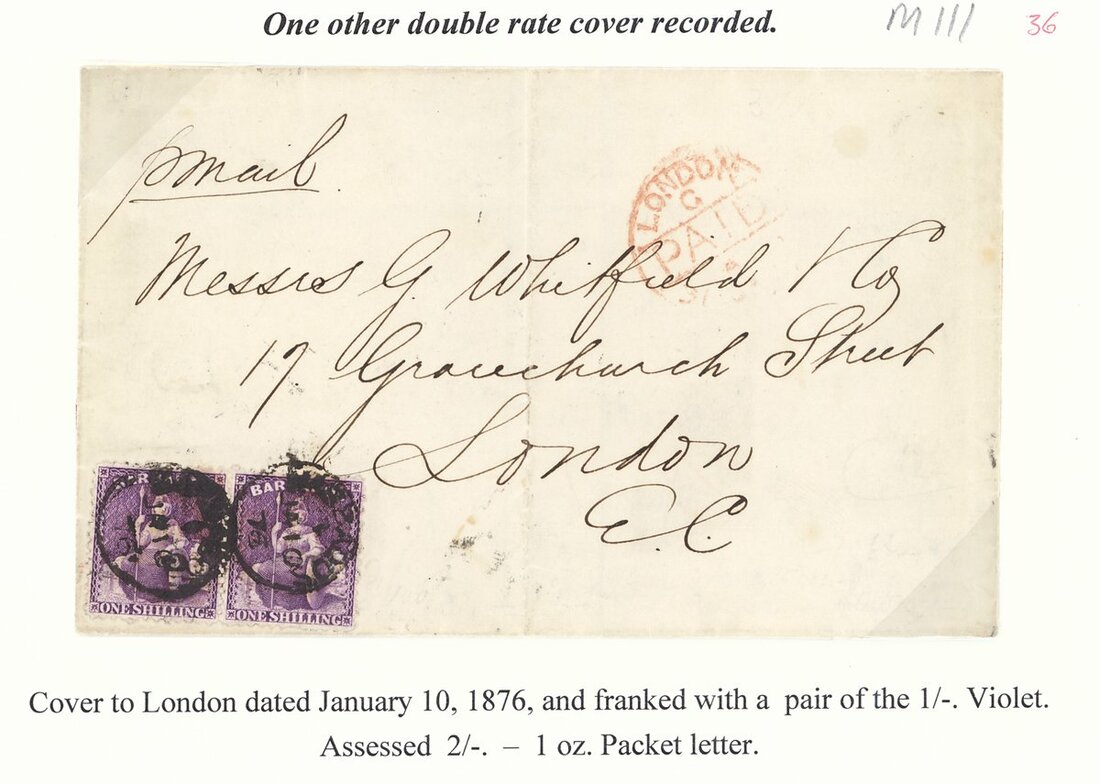 One other double rate cover recorded.
M 111
36
p mail
LONDON
G
PAID
Messrs G. Whitfield & Co
17 Gracechurch Street
London
E.C.
BAR
BAR
ONE SHILLING
ONE SHILLING
Cover to London dated January 10, 1876, and franked with a pair of the 1/-. Violet.
Assessed 2/-. – 1 oz. Packet letter.